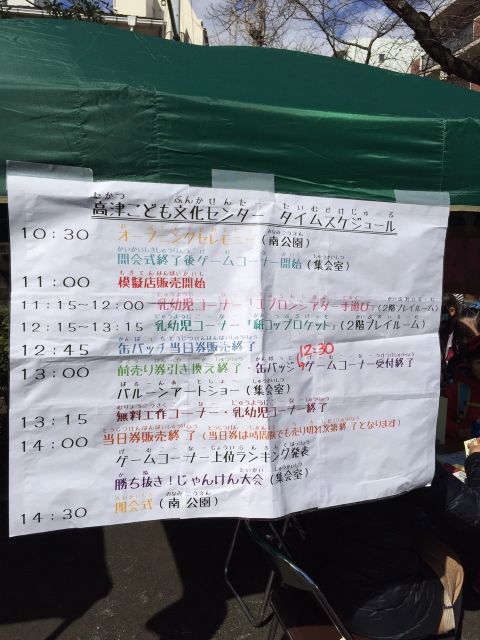 高津こども文化センター タイムスケジュール
10:30 オープニングセレモニー(南公園)
開会式終了後ゲームコーナー開始(集会室)
11:00 模擬店販売開始
11:15~12:00 乳幼児コーナー「エプロンシアター手遊び」(2階プレイルーム)
12:15~13:15 乳幼児コーナー「紙コップロケット」(2階プレイルーム)
12:45 缶バッチ当日券販売終了
12:30
13:00 前売り券引き換え終了・缶バッジ・ゲームコーナー受付終了
バルーンアートショー(集会室)
13:15 無料工作コーナー・乳幼児コーナー終了
14:00 当日券販売終了(当日券は時間前でも売り切れ次第終了となります)
ゲームコーナー上位ランキング発表
勝ち抜き!じゃんけん大会(集会室)
14:30 閉会式(南公園)